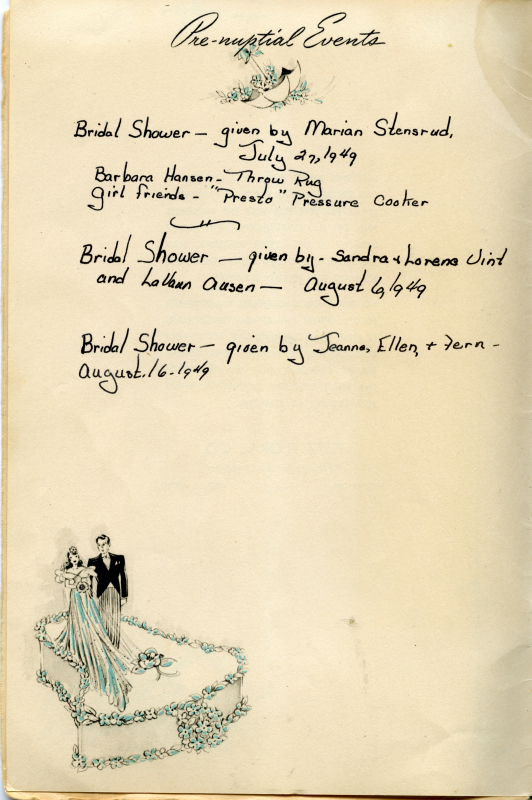 Pre-nuptial Events
Bridal Shower — given by Marian Stensrud,
July 27, 1949
Barbara Hansen - Throw Rug
Girl friends - "Presto" Pressure Cooker
Bridal Shower — given by - Sandra & Lorene Vint
and LaVaun Ausen — August 6, 1949
Bridal Shower — given by Jeanne, Ellen, + Fern -
August. 16 - 1949